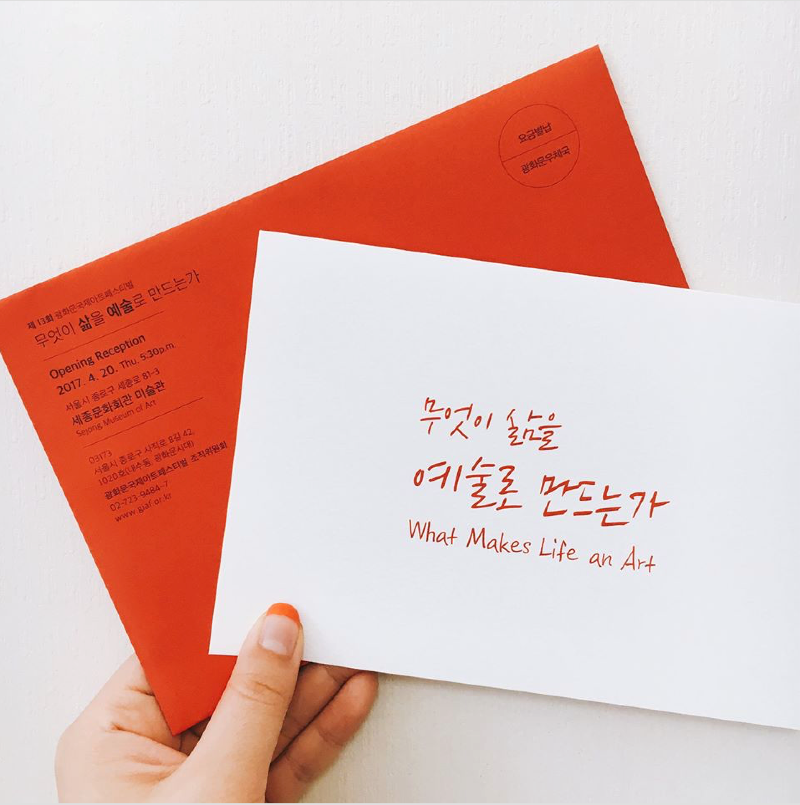 요금별납
광화문우체국
제 13회 광화문국제아트페스티벌
무엇이 삶을 예술로 만드는가
Opening Reception
2017. 4. 20. Thu. 5:30p.m
서울시 종로구 세종로 81-3
세종문화회관 미술관
Sejong Museum of Art
03173
서울시 종로구 사직로 8길 42,
1020호(내수동, 광화문시대)
광화문국제아트페스티벌 조직위원회
02-723-9484~7
www.giaf.or.kr
무엇이 삶을
예술로 만드는가
What Makes Life an Art